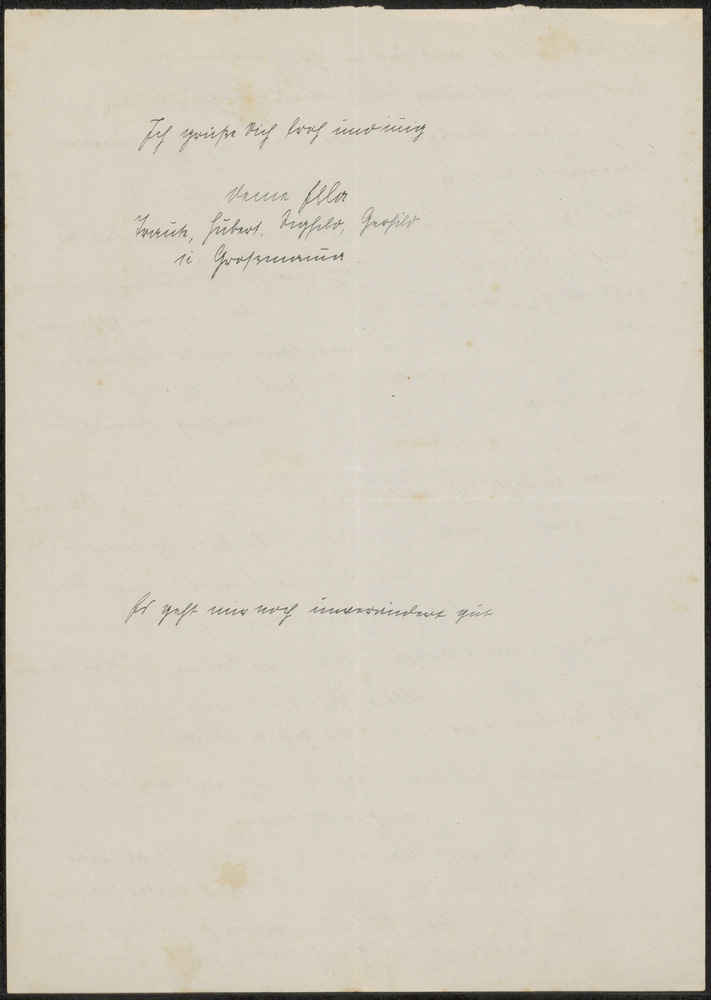 Ich grüße Dich lieb und innig
Deine Ella
Traute, Hubert, Sieghild, Gerhild
u. Grossmama
Es geht mir noch unverändert gut